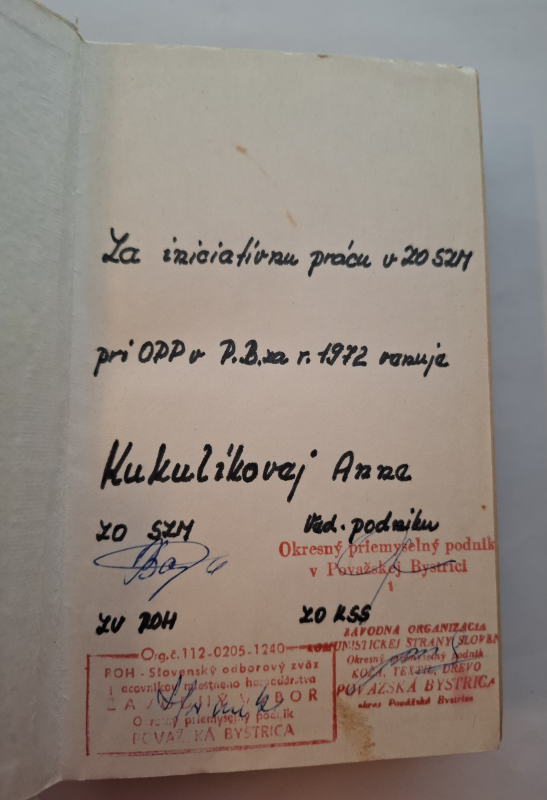 Za iniciatívnu prácu v ZO SZM
pri OPP v P.B. za r. 1972 venuje
Kukulíkovej Anne
ZO SZM
Ved. podniku
Okresný priemyselný podnik
v Považskej Bystrici
1
ZV ROH
ZO KSS
Org.č.112-0205-1240
ROH - Slovenský odborový zväz
pracovníkov miestneho hospodárstva
ZÁVODNÝ VÝBOR
Okresný priemyselný podnik
POVAŽSKÁ BYSTRICA
ZÁVODNÁ ORGANIZÁCIA
KOMUNISTICKEJ STRANY SLOVEN
Okresný priemyselný podnik
KOŽA, TEXTIL, DREVO
POVAŽSKÁ BYSTRICA
okres Považská Bystrica